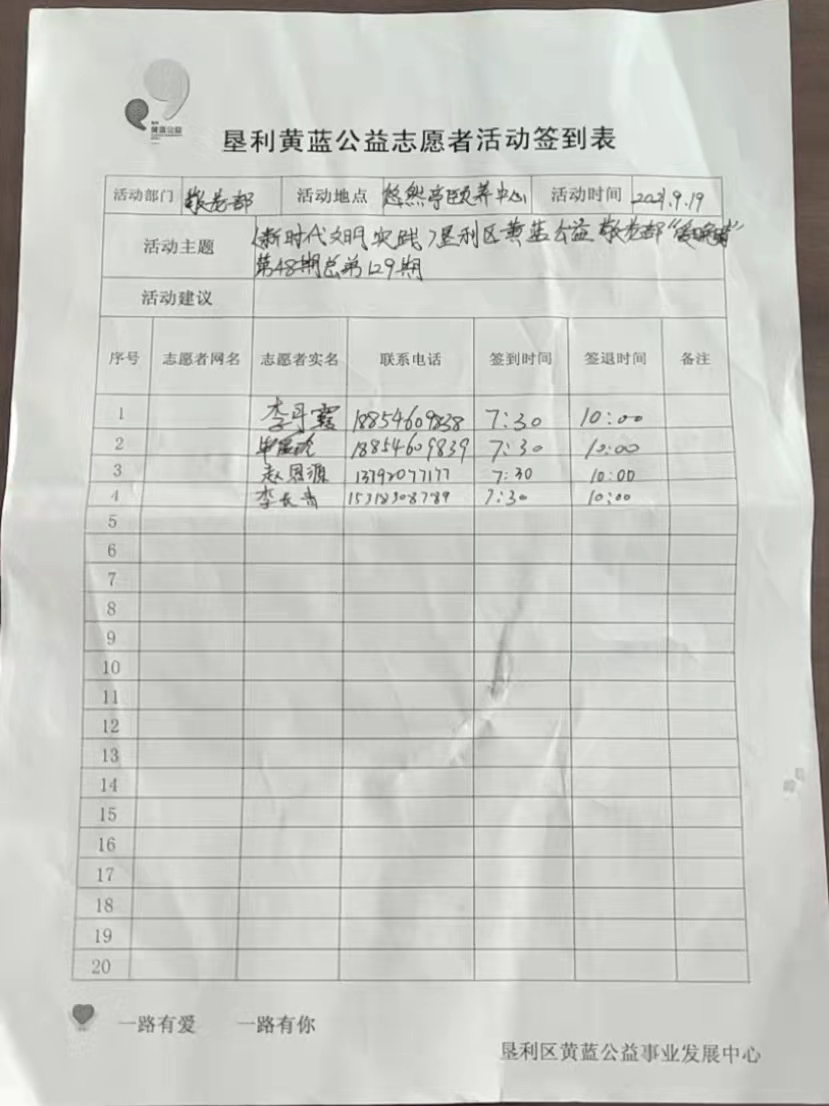 黄蓝公益
垦利黄蓝公益志愿者活动签到表
活动部门 敬老部 活动地点 悠然亭颐养中心 活动时间 2021.9.19
活动主题 (新时代文明实践)垦利区黄蓝公益敬老部
第48期总第129期
活动建议
序号 志愿者网名 志愿者实名 联系电话 签到时间 签退时间 备注
1 李丹霞 18854609838 7:30 10:00
2 18854609839 7:30 10:00
3 赵恩源 13792077177 7:30 10:00
4 李长青 7:30 10:00
5
6
7
8
9
10
11
12
13
14
15
16
17
18
19
20
一路有爱 一路有你
垦利区黄蓝公益事业发展中心